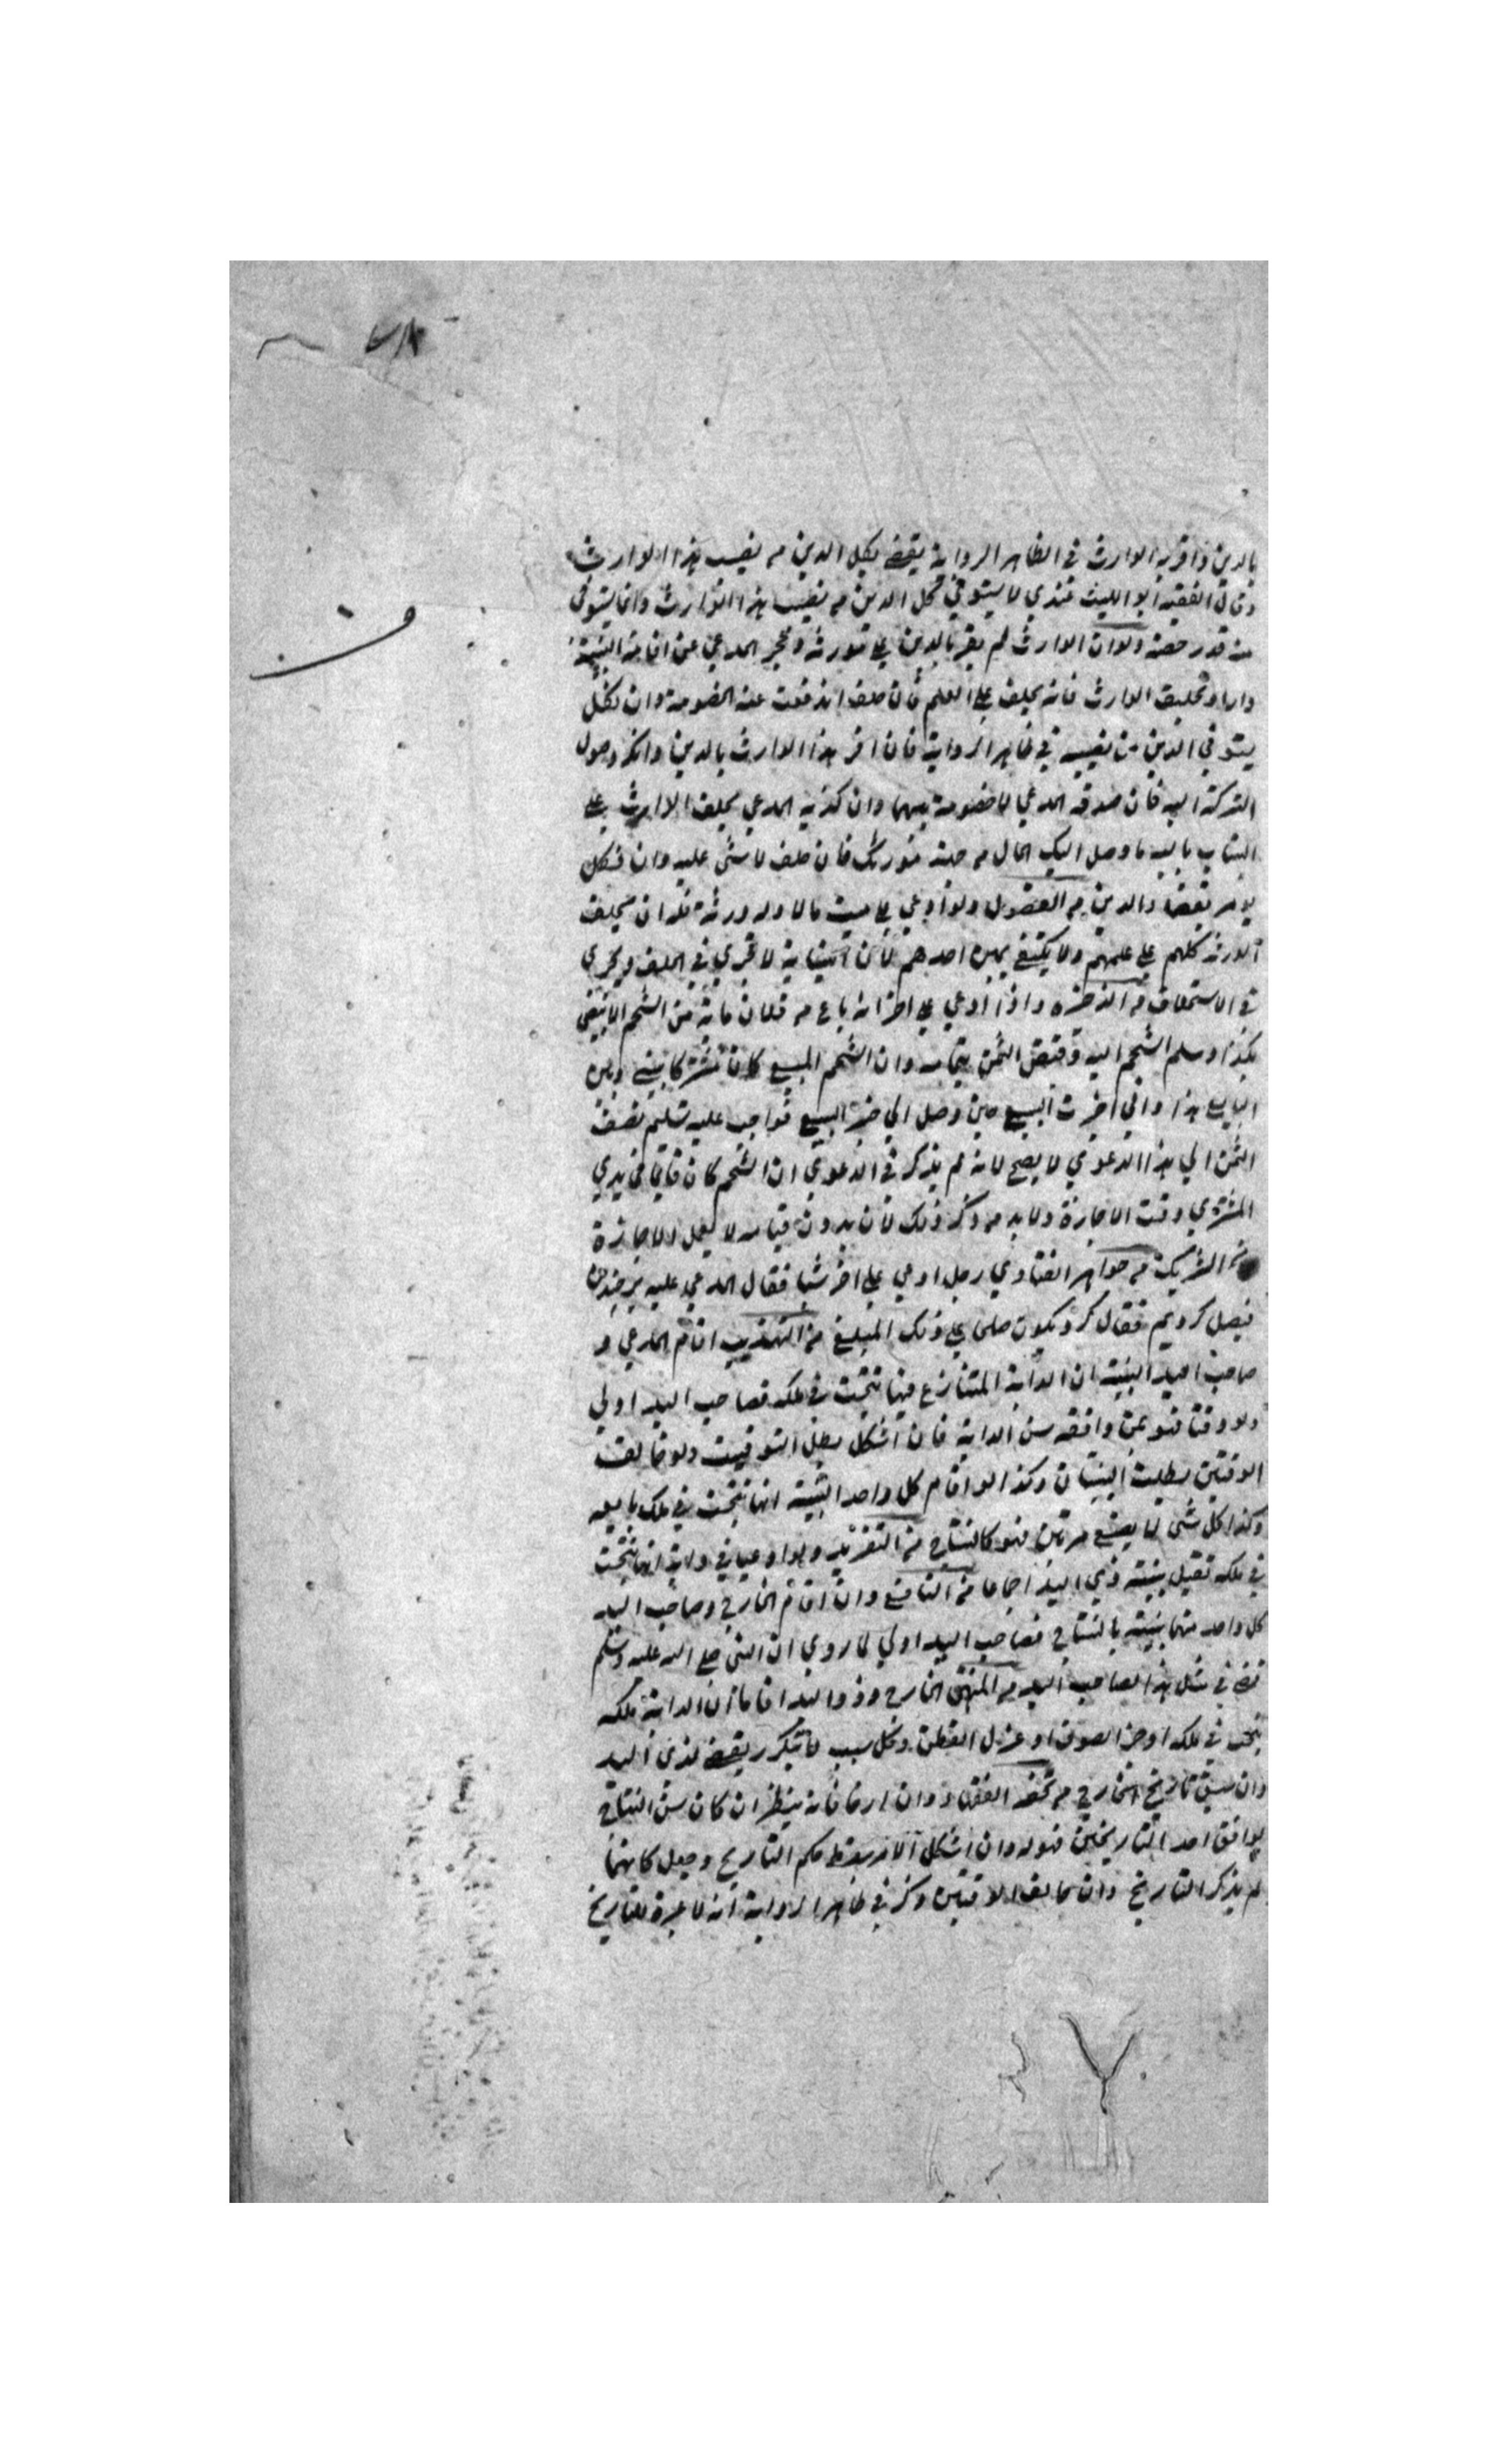 بالدين واقر به الوارث في الظاهر الرواية يقضي بكل الدين من نصيب هذا الوارث
وقال الفقيه ابو الليث عندي لا يستوفي كل الدين من نصيب هذا الوارث وانما يستوفي
منه قدر حصته ولو ان الوارث لم يقر بالدين علي مورثه وعجز المدعي عن اقامة البينة
واراد تحليف الوارث فانه يحلف علي العلم فان حلف اندفعت عنه الخصومة وان نكل
يستوفي الدين من نصيبه في ظاهر الرواية فان اقر هذا الوارث بالدين وانكر وصول
التركة اليه فان صدقه المدعي لا خصومة بينهما وان كذبه المدعي يحلف الوارث علي
البتات بالله ما وصل اليك المال من جهة مورثك فان حلف لا شئ عليه وان نكل
يؤمر بقضاء الدين من الفصول ولو ادعي علي ميت مالا وله ورثة فله ان يحلف
الورثة كلهم علي علمهم ولا يكتفي بيمين احدهم لان النيابة لا تجري في الحلف ويجري
في الاستحلاف من الذخيره واذا ادعي علي اخر انه باع من فلان مائة من الشحم الابيض
بكذا وسلم الشحم اليه وقبض الثمن بتمامه وان الشحم المبيع كان مشتركا بيني وبين
البايع هذا واني اجزت البيع حين وصل الي خبر البيع فواجب عليه تسليم نصف
الثمن الي هذا الدعوي لا يصح لانه لم يذكر في الدعوي ان الشحم كان قائما في يدي
المشتري وقت الاجازة ولا بد من ذكر ذلك لان بدون قيامه لا يعمل الاجازة
الشريك من جواهر الفتاوي رجل ادعي علي اخر شيا فقال المدعي عليه
فيصل كرديم فقال كرد يكون صلحا علي ذلك المبلغ من التهذيب اقام المدعي و
صاحب اليد البينة ان الدابة المتنازع فيها نتجت في ملكه فصاحب اليد اولي
ولو وقتا فهو لمن وافقه سن الدابة فان اشكل بطل التوقيت ولو خالف
الوقتين بطلت البينتان وكذا لو اقام كل واحد البينة انها نتجت في ملك بايعه
وكذا كل شئ لا يصنع مرتين فهو كالنتاج من التفريد ولو ادعيا في دابة انها نتجت
في ملكه تقبل بينة ذي اليد اجماعا من النافع وان اقام الخارج وصاحب اليد
كل واحد منهما بينة بالنتاج فصاحب اليد اولي لما روي ان النبي صلي الله عليه وسلم
قضي في مثل هذا لصاحب اليد من المنتقي الخارج وذو اليد اقاما ان الدابة ملكه
نتجت في ملكه او جز الصوف او غزل القطن وكل سبب لا يتكرر يقضي لذي اليد
وان سبق تاريخ الخارج من تحفة الفقهاء وان ارخا فانه ينظر ان كان سن النتاج
يوافق احد التاريخين فهو له وان اشكل الامر سقط حكم التاريخ وجعل كانهما
لم يذكر التاريخ وان خالف الوقتين ذكر في ظاهر الرواية انه لا عبرة للتاريخ